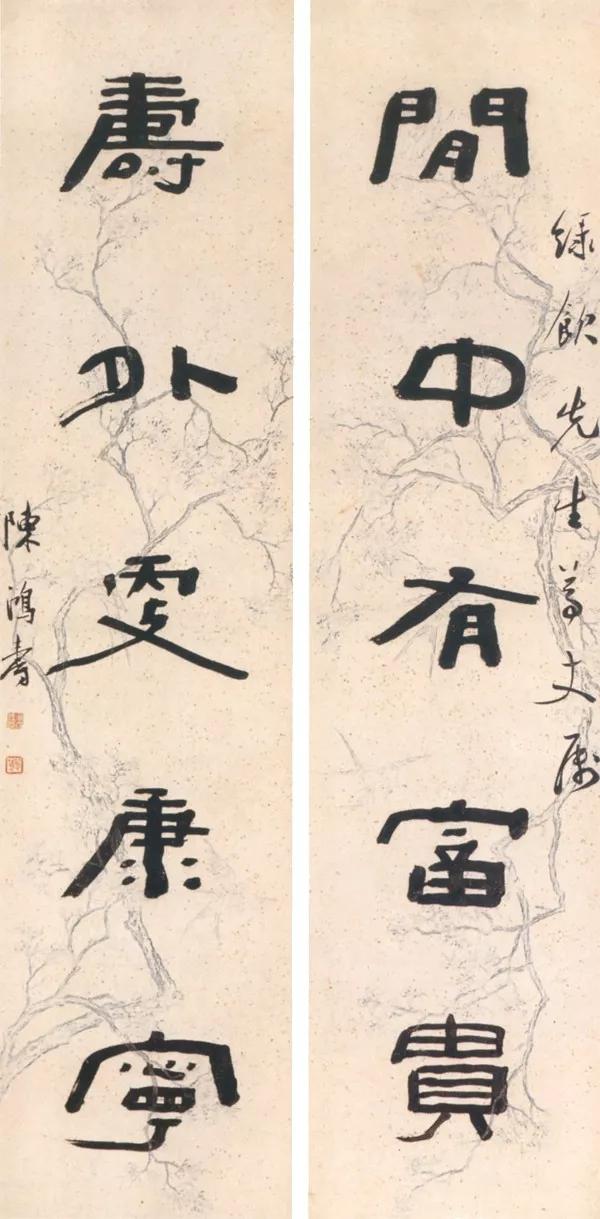 綠飲先生尊丈屬
閒中有富貴
壽外㪅康寧
陳鴻壽